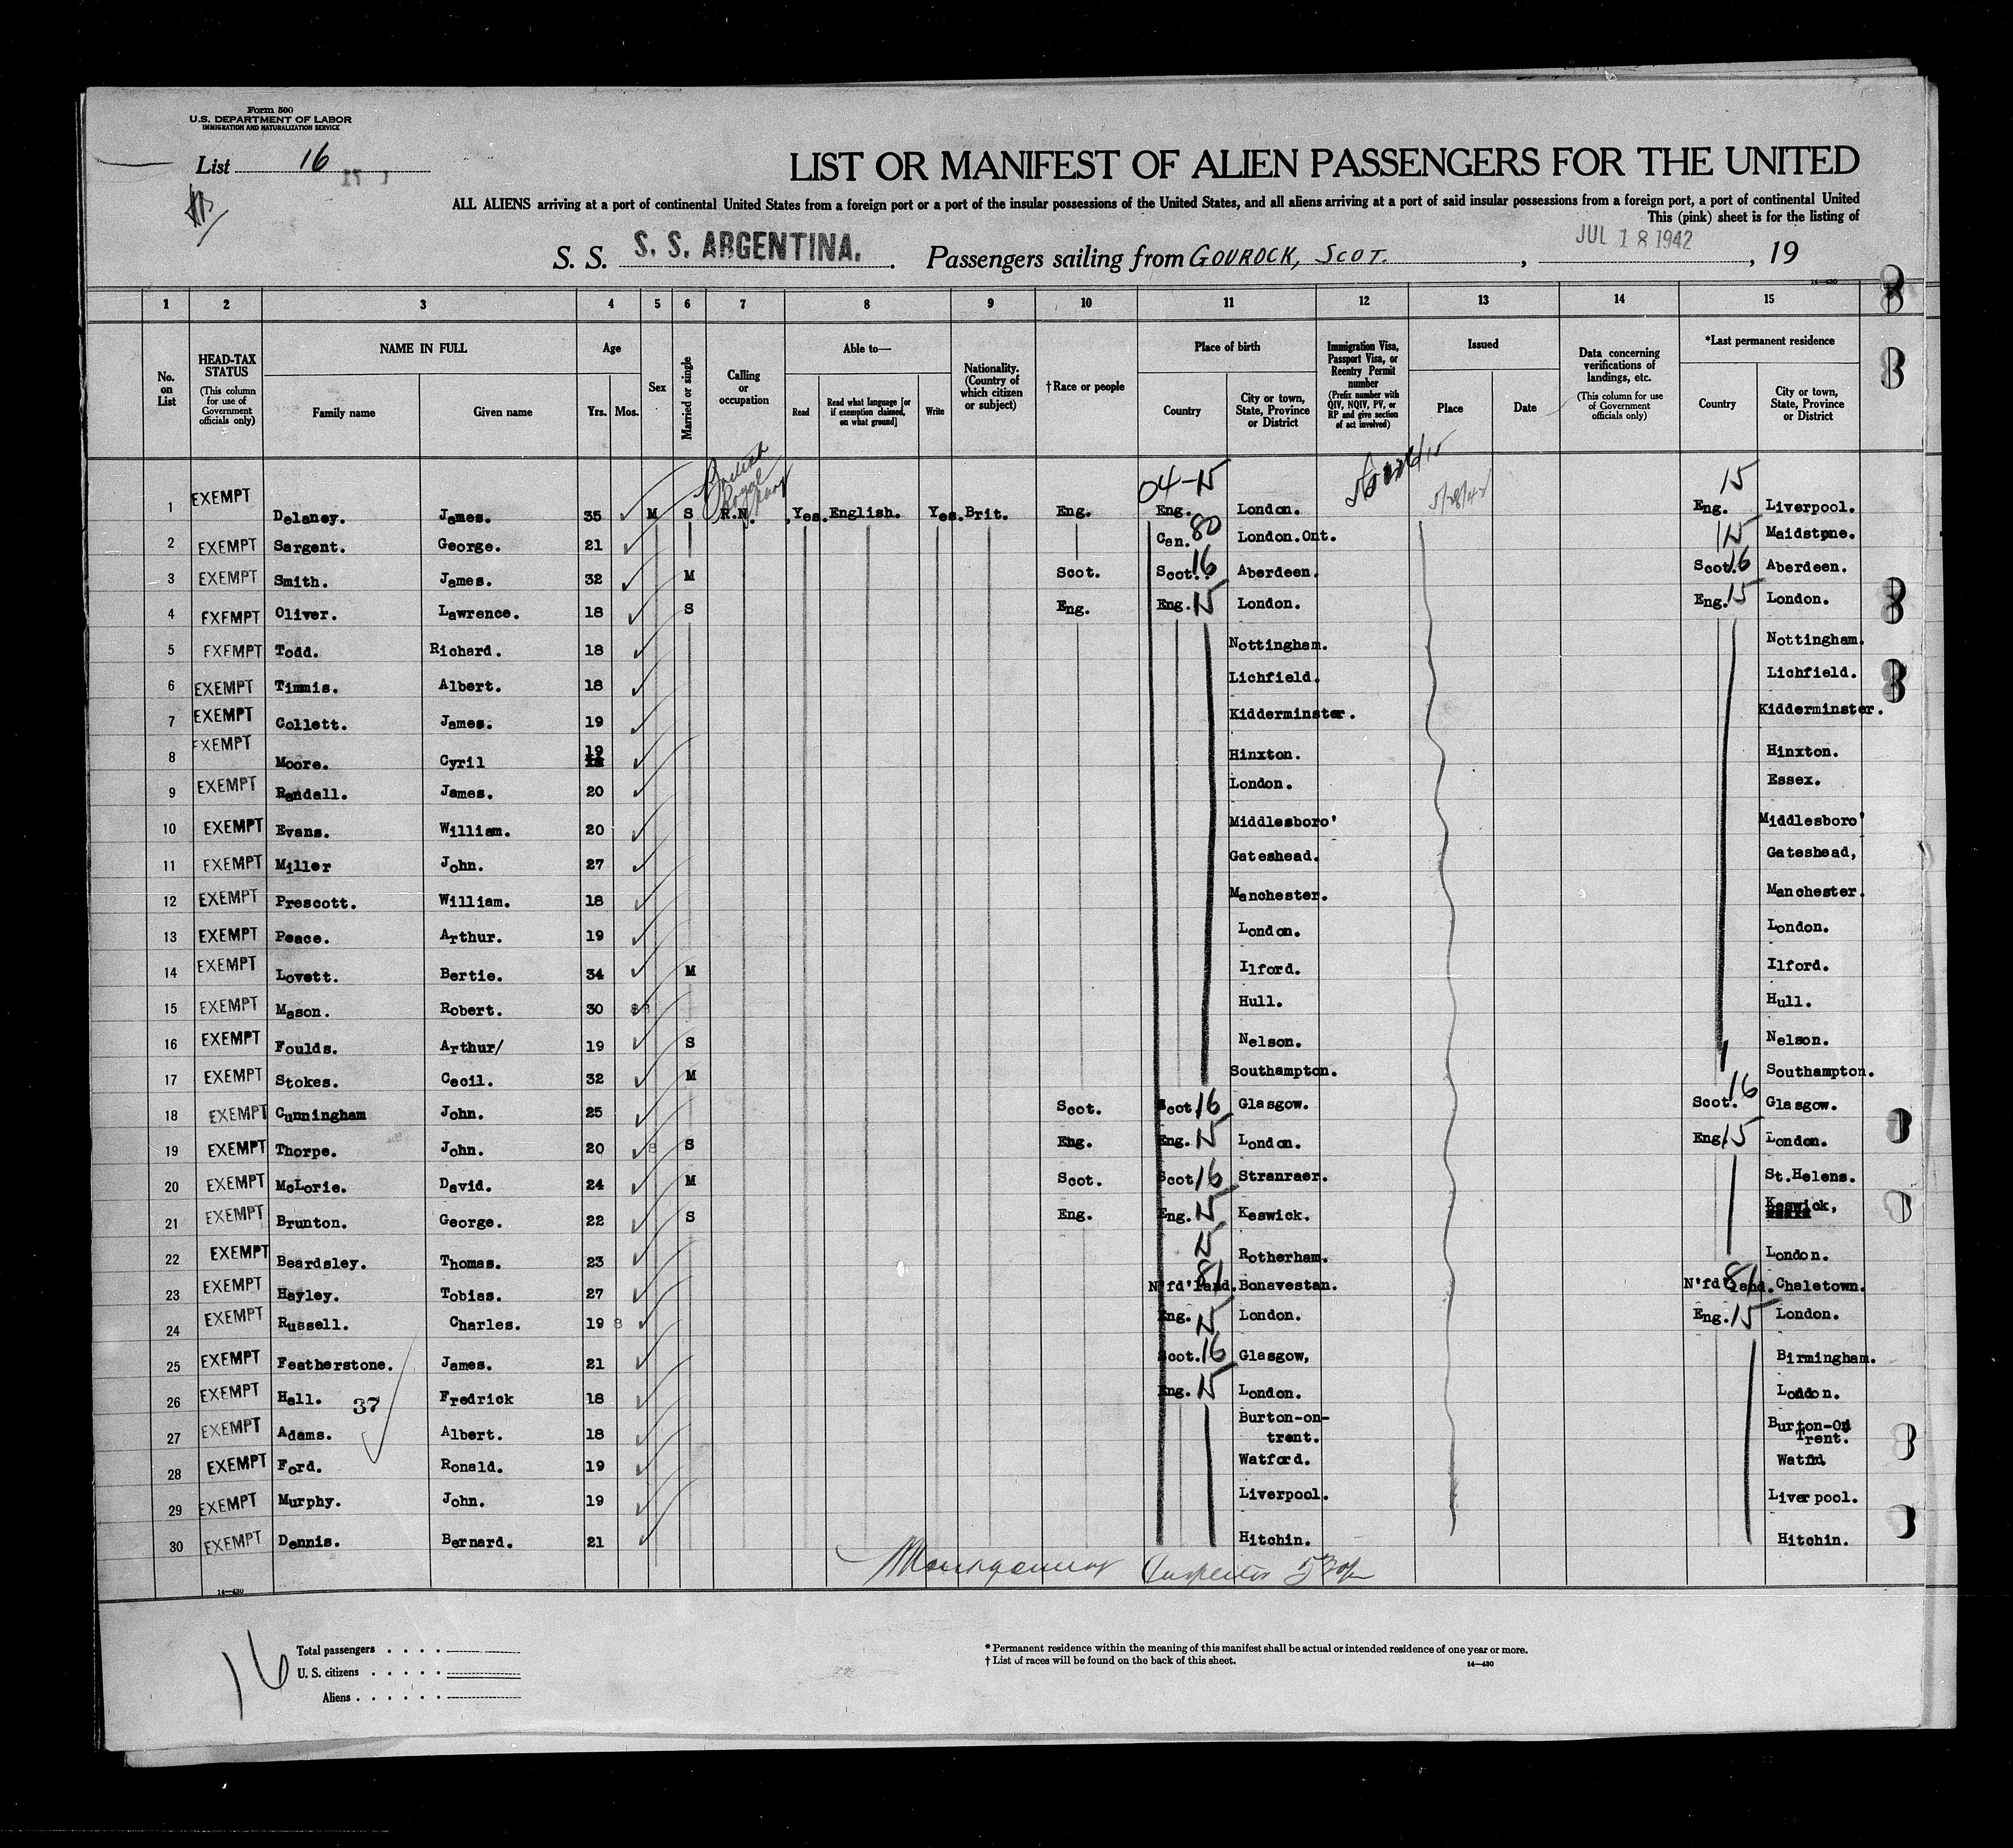 Form 500
U.S. DEPARTMENT OF LABOR
IMMIGRATION AND NATURALIZATION SERVICE
List 16
LIST OR MANIFEST OF ALIEN PASSENGERS FOR THE UNITED
ALL ALIENS arriving at a port of continental United States from a foreign port or a port of the insular possessions of the United States, and all aliens arriving at a port of said insular possessions from a foreign port, a port of continental United
This (pink) sheet is for the listing of
S. S. S. S. ARGENTINA. Passengers sailing from GOUROCK, SCOT. , JUL 18 1942 , 19
14—430
1 2 3 4 5 6 7 8 9 10 11 12 13 14 15
No. on List
HEAD-TAX STATUS (This column for use of Government officials only)
NAME IN FULL
Family name Given name
Age
Yrs. Mos.
Sex
Married or single
Calling or occupation
Able to—
Read Read what language [or if exemption claimed, on what ground] Write
Nationality. (Country of which citizen or subject)
†Race or people
Place of birth
Country City or town, State, Province or District
Immigration Visa, Passport Visa, or Reentry Permit number (Prefix number with QIV, NQIV, PV, or RP and give section of act involved)
Issued
Place Date
Data concerning verifications of landings, etc. (This column for use of Government officials only)
*Last permanent residence
Country City or town, State, Province or District
British Royal Navy
04-15 5/28/42 15
1 EXEMPT Delaney. James. 35 M S R.N. Yes. English. Yes. Brit. Eng. Eng. London. Eng. Liverpool.
2 EXEMPT Sargent. George. 21 Can. 80 London.Ont. 15 Maidstone.
3 EXEMPT Smith. James. 32 M Scot. Scot. 16 Aberdeen. Scot. 16 Aberdeen.
4 EXEMPT Oliver. Lawrence. 18 S Eng. Eng. 15 London. Eng. 15 London.
5 EXEMPT Todd. Richard. 18 Nottingham. Nottingham.
6 EXEMPT Timmis. Albert. 18 Lichfield. Lichfield.
7 EXEMPT Collett. James. 19 Kidderminster. Kidderminster.
8 EXEMPT Moore. Cyril 19 Hinxton. Hinxton.
9 EXEMPT Randall. James. 20 London. Essex.
10 EXEMPT Evans. William. 20 Middlesboro' Middlesboro'
11 EXEMPT Miller John. 27 Gateshead. Gateshead,
12 EXEMPT Prescott. William. 18 Manchester. Manchester.
13 EXEMPT Peace. Arthur. 19 London. London.
14 EXEMPT Lovett. Bertie. 34 M Ilford. Ilford.
15 EXEMPT Mason. Robert. 30 Hull. Hull.
16 EXEMPT Foulds. Arthur/ 19 S Nelson. Nelson.
17 EXEMPT Stokes. Cecil. 32 M Southampton. Southampton.
18 EXEMPT Cunningham John. 25 Scot. Scot 16 Glasgow. Scot. 16 Glasgow.
19 EXEMPT Thorpe. John. 20 S Eng. Eng. 15 London. Eng 15 London.
20 EXEMPT McLorie. David. 24 M Scot. Scot 16 Stranraer. St.Helens.
21 EXEMPT Brunton. George. 22 S Eng. Eng. 15 Keswick. Keswick,
22 EXEMPT Beardsley. Thomas. 23 15 Rotherham. London.
23 EXEMPT Hayley. Tobias. 27 N'fd'land. 81 Bonavestan. N'fd'land. 81 Chaletown.
24 EXEMPT Russell. Charles. 19 Eng. 15 London. Eng. 15 London.
25 EXEMPT Featherstone. James. 21 Scot. 16 Glasgow, Birmingham.
26 EXEMPT Hall. 37 Fredrick 18 Eng. 15 London. London.
27 EXEMPT Adams. Albert. 18 Burton-on-trent. Burton-On Trent.
28 EXEMPT Ford. Ronald. 19 Watford.
29 EXEMPT Murphy. John. 19 Liverpool. Liverpool.
30 EXEMPT Dennis. Bernard. 21 Hitchin. Hitchin.
Montgomery Inspector
14—430
16
Total passengers
U. S. citizens
Aliens
* Permanent residence within the meaning of this manifest shall be actual or intended residence of one year or more.
† List of races will be found on the back of this sheet.
14—430